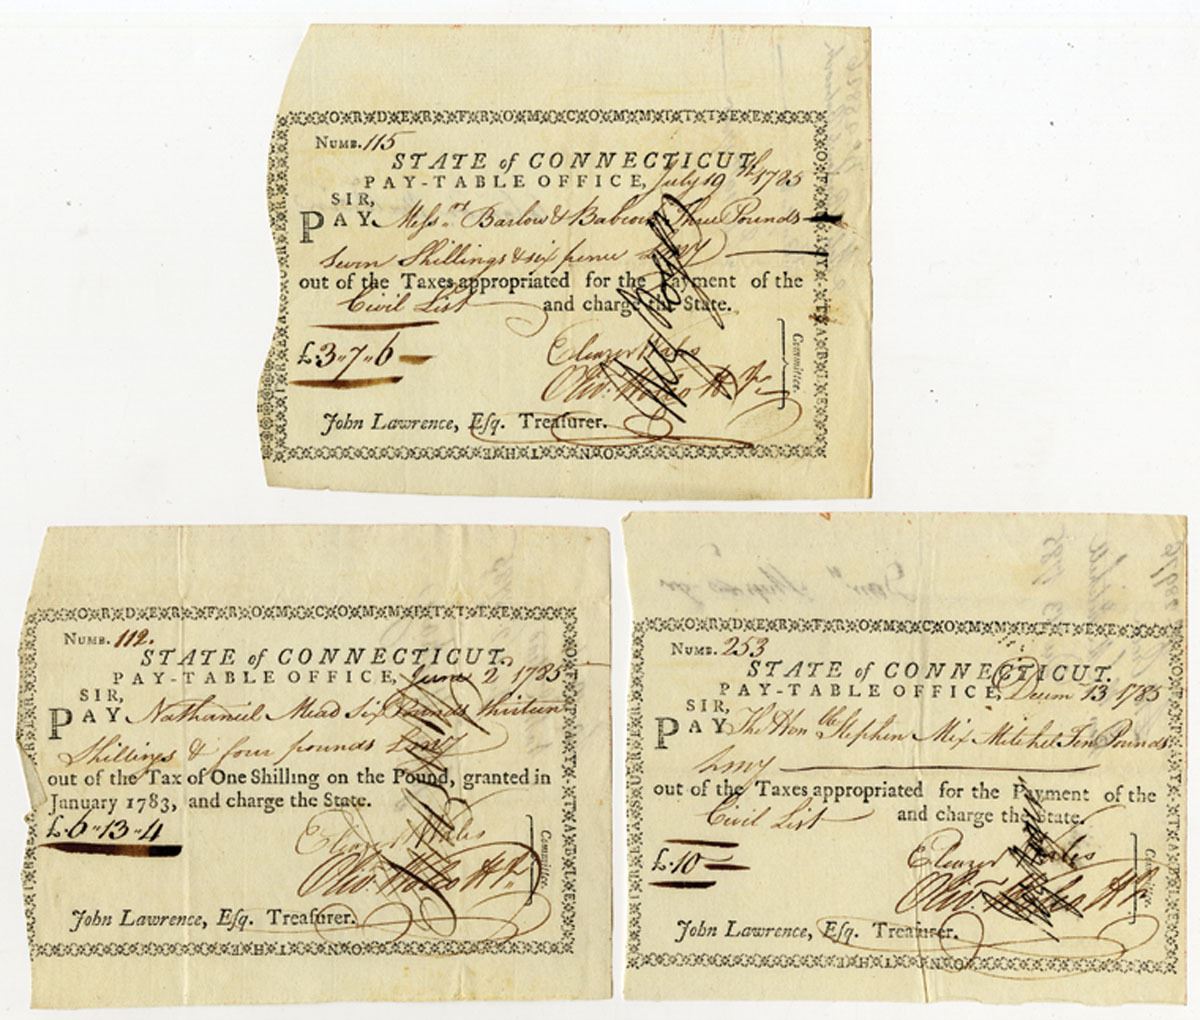 ORDER FROM COMMITTEE
OF PAY-TABLE
ON THE
TREASURER
Numb. 115
STATE of CONNECTICUT.
PAY-TABLE OFFICE, July 19th 1785
SIR,
PAY Messrs Barlow & Babcock Three Pounds
Seven Shillings & six pence Lmy
out of the Taxes appropriated for the Payment of the
Civil List and charge the State.
£.3„7„6
Eleazer Wales
Oliv. Wolcott Jr.
Committee.
John Lawrence, Esq. Treasurer.
ORDER FROM COMMITTEE
OF PAY-TABLE
ON THE
TREASURER
Numb. 112.
STATE of CONNECTICUT.
PAY-TABLE OFFICE, June 2 1785
SIR,
PAY Nathaniel Mead Six Pounds thirteen
Shillings & four pounds Lmy
out of the Tax of One Shilling on the Pound, granted in
January 1783, and charge the State.
£.6„13„4
Eleazer Wales
Oliv. Wolcott Jr.
Committee.
John Lawrence, Esq. Treasurer.
ORDER FROM COMMITTEE
OF PAY-TABLE
ON THE
TREASURER
Numb. 253
STATE of CONNECTICUT.
PAY-TABLE OFFICE, Decem 13 1785
SIR,
PAY The Honble Stephen Mix Mitchel Ten Pounds
Lmy
out of the Taxes appropriated for the Payment of the
Civil List and charge the State.
£.10
Eleazer Wales
Oliv. Wolcott Jr.
Committee.
John Lawrence, Esq. Treasurer.